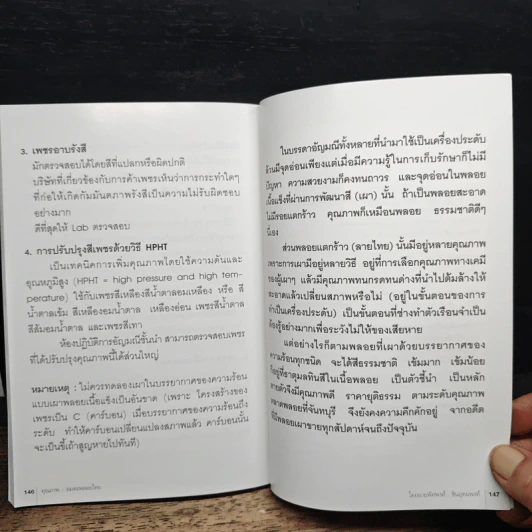 3. เพชรอาบรังสี
มักตรวจสอบได้โดยสีที่แปลกหรือผิดปกติ
บริษัทที่เกี่ยวข้องกับการค้าเพชรเห็นว่าการกระทำใดๆ
ที่ก่อให้เกิดกัมมันตภาพรังสีเป็นความไม่รับผิดชอบ
อย่างมาก
ดีที่สุดให้ Lab ตรวจสอบ
4. การปรับปรุงสีเพชรด้วยวิธี HPHT
เป็นเทคนิคการเพิ่มคุณภาพโดยใช้ความดันและ
อุณหภูมิสูง (HPHT = high pressure and high tem-
perature) ใช้กับเพชรสีเหลืองสีน้ำตาลอมเหลือง หรือ สี
น้ำตาลเข้ม สีเหลืองอมน้ำตาล เหลืองอ่อน เพชรสีน้ำตาล
สีส้มอมน้ำตาล และเพชรสีเทา
ห้องปฏิบัติการอัญมณีชั้นนำ สามารถตรวจสอบเพชร
ที่ได้ปรับปรุงคุณภาพนี้ได้ส่วนใหญ่
หมายเหตุ : ไม่ควรทดลองเผาในบรรยากาศของความร้อน
แบบเผาพลอยเนื้อแข็งเป็นอันขาด (เพราะ โครงสร้างของ
เพชรเป็น C (คาร์บอน) เมื่อบรรยากาศของความร้อนถึง
ระดับ ทำให้คาร์บอนเปลี่ยนแปลงสภาพแล้ว คาร์บอนนั้น
จะเป็นขี้เถ้าสูญหายไปทันที)
146
ในบรรดาอัญมณีทั้งหลายที่นำมาใช้เป็นเครื่องประดับ
ล้วนมีจุดอ่อนเพียงแต่เมื่อมีความรู้ในการเก็บรักษาก็ไม่มี
ปัญหา ความสวยงามก็คงทนถาวร และจุดอ่อนในพลอย
เนื้อแข็งที่ผ่านการพัฒนาสี (เผา) นั้น ถ้าเป็นพลอยสะอาด
ไม่มีรอยแตกร้าว คุณภาพก็เหมือนพลอย ธรรมชาติดีๆ
นี่เอง
ส่วนพลอยแตกร้าว (ลายไทย) นั้นมีอยู่หลายคุณภาพ
เพราะการเผามีอยู่หลายวิธี อยู่ที่การเลือกคุณภาพทางเคมี
ของผู้เผาๆ แล้วมีคุณภาพทนกรดทนด่างที่นำไปต้มล้างให้
สะอาดแล้วเปลี่ยนสภาพหรือไม่ (อยู่ในขั้นตอนของการ
ทำเป็นเครื่องประดับ) เป็นขั้นตอนที่ช่างทำตัวเรือนจำเป็น
ต้องรู้อย่างมากเพื่อระวังไม่ให้ของเสียหาย
แต่อย่างไรก็ตามพลอยที่เผาด้วยบรรยากาศของ
ความร้อนทุกชนิด จะได้สีธรรมชาติ เข้มมาก เข้มน้อย
อยู่ที่ธาตุมลทินสีในเนื้อพลอย เป็นตัวชี้นำ เป็นหลัก
ตัวจึงมีคุณภาพดี ราคายุติธรรม ตามระดับคุณภาพ
ตลาดพลอยที่จันทบุรี จึงยังคงความคึกคักอยู่ จากอดีต
มีพลอยเผาขายทุกสัปดาห์จนถึงปัจจุบัน
147